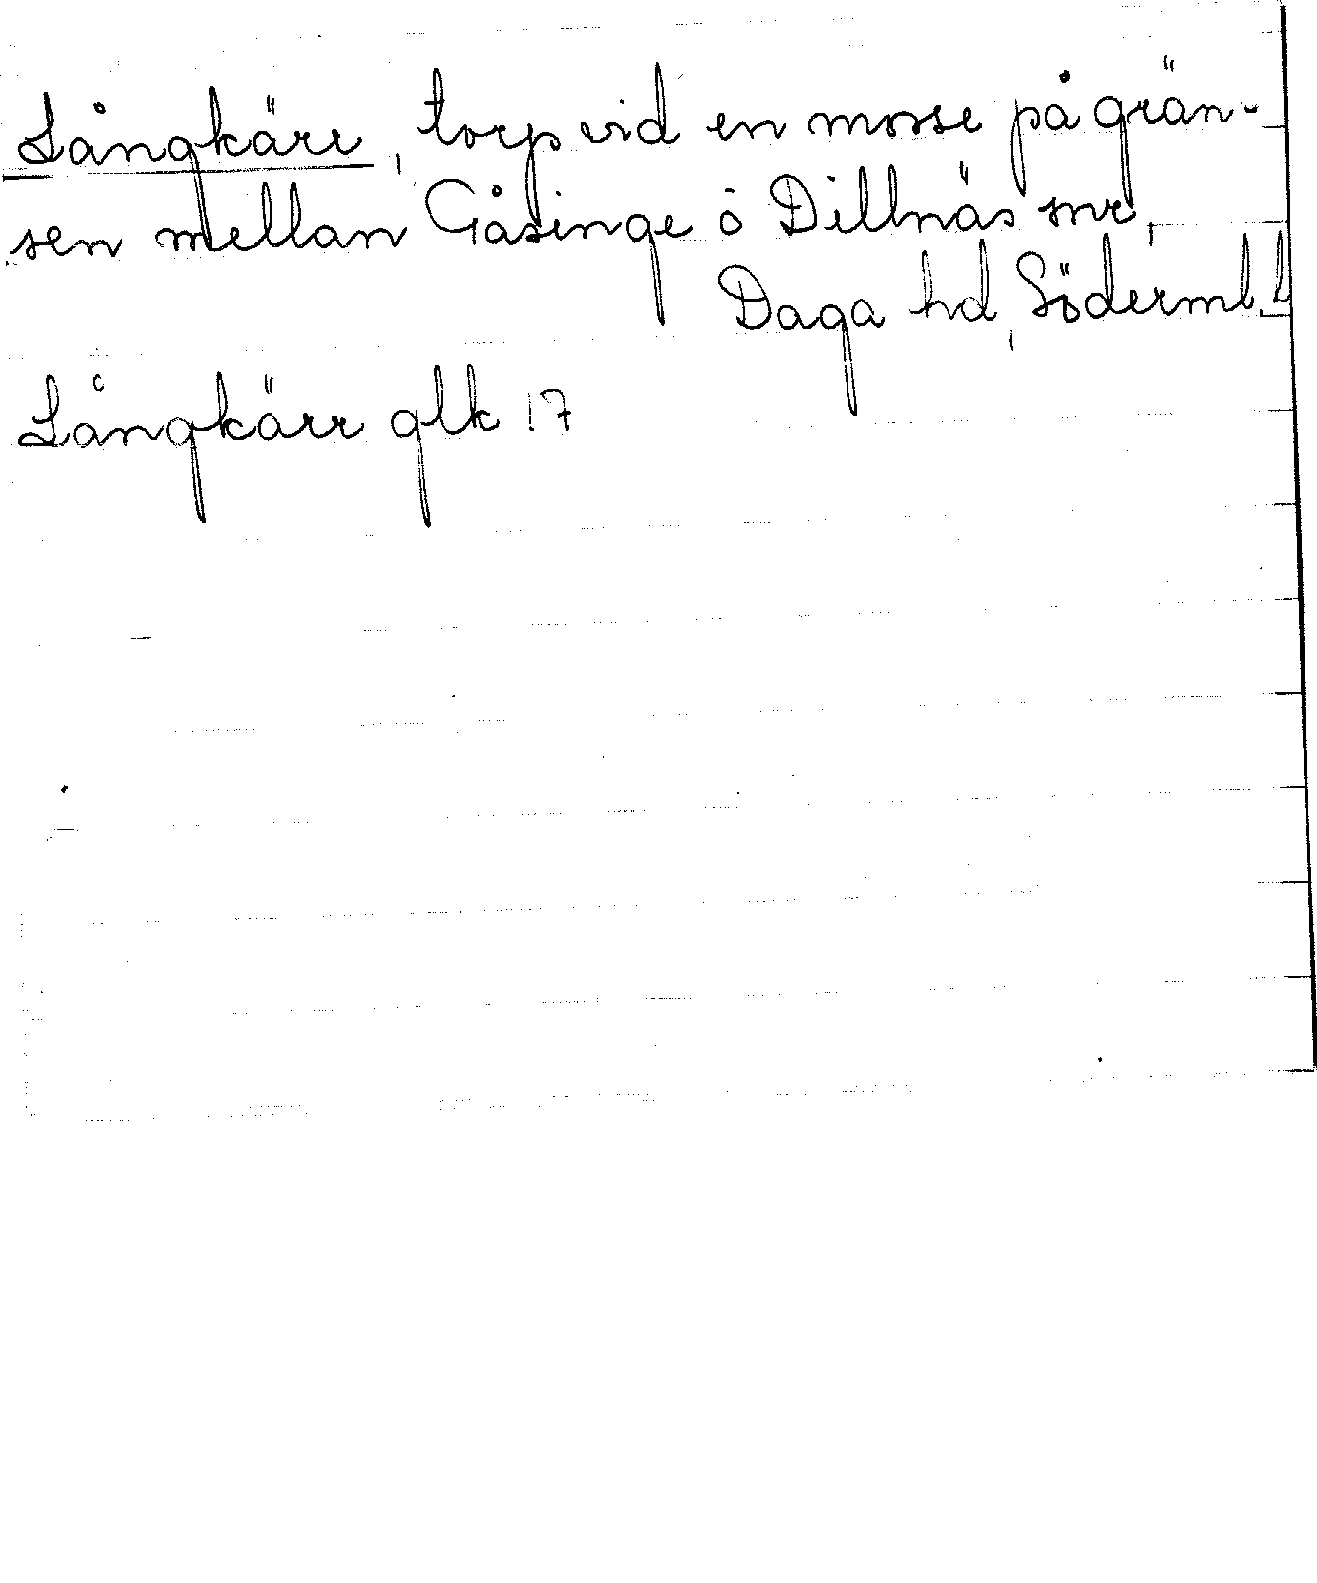 Långkärr, torp vid en mosse på grän-
sen mellan Gåsinge o Dillnäs snr,
Daga hd, Söderml. L
Långkärr glk 17